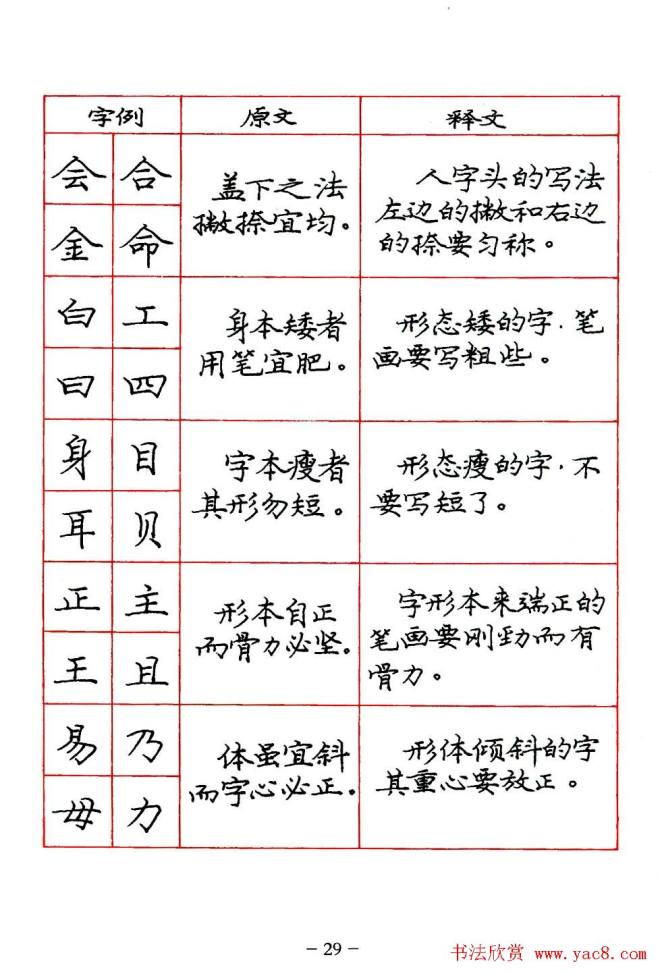 字例 原文 释文
会 合
金 命
盖下之法
撇捺宜均。
人字头的写法
左边的撇和右边
的捺要匀称。
白 工
曰 四
身本矮者
用笔宜肥。
形态矮的字，笔
画要写粗些。
身 目
耳 贝
字本瘦者
其形勿短。
形态瘦的字，不
要写短了。
正 主
王 且
形本自正
而骨力必坚。
字形本来端正的
笔画要刚劲而有
骨力。
易 乃
毋 力
体虽宜斜
而字心必正。
形体倾斜的字
其重心要放正。
- 29 -
书法欣赏 www.yac8.com